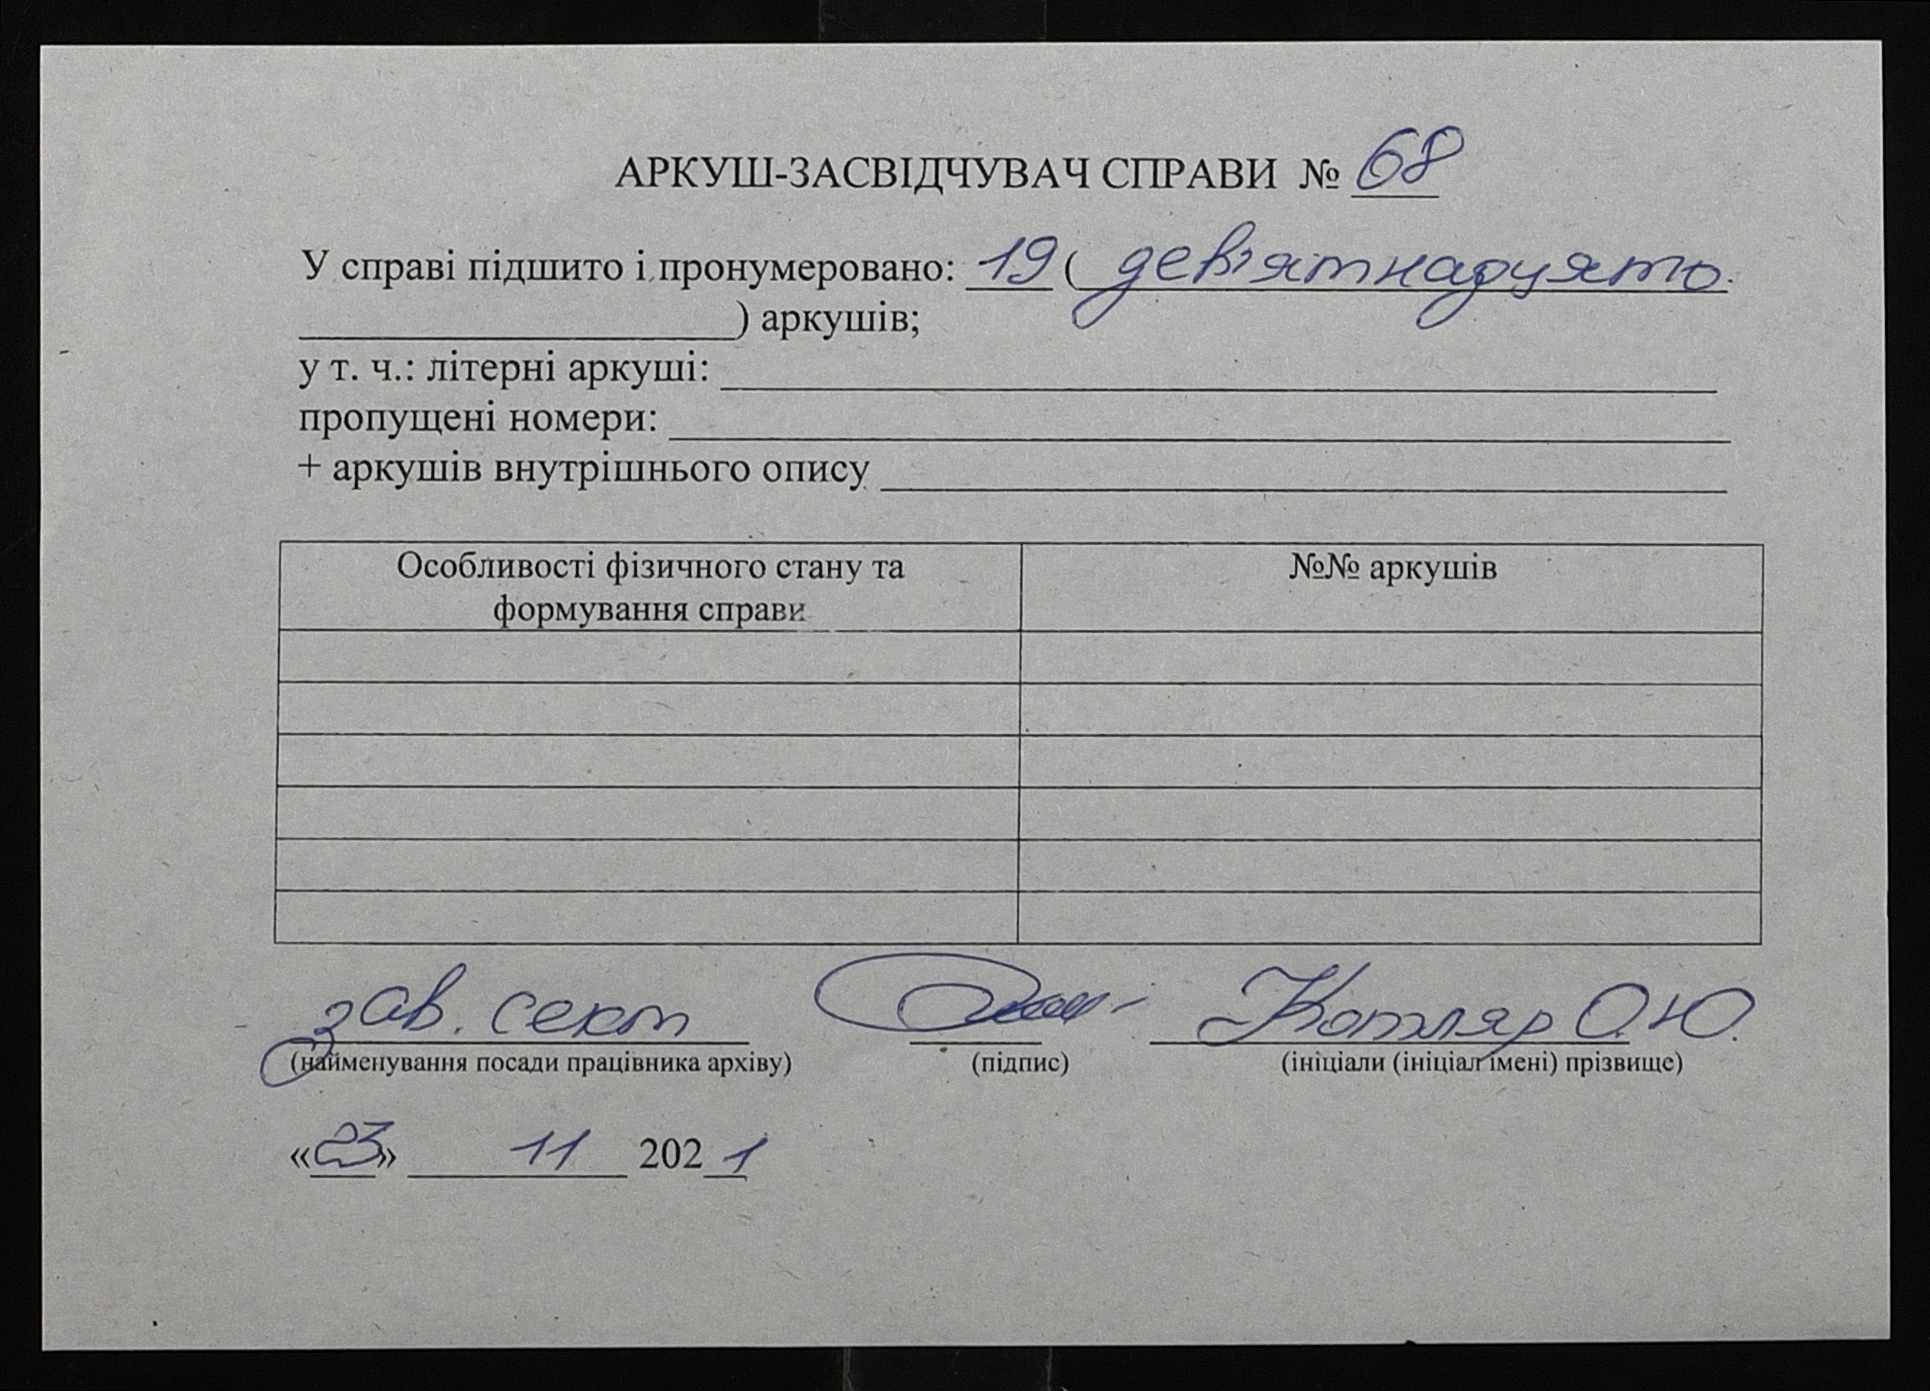 АРКУШ-ЗАСВІДЧУВАЧ СПРАВИ № 68
У справі підшито і пронумеровано: 19 ( дев'ятнадцять
) аркушів;
у т. ч.: літерні аркуші:
пропущені номери:
+ аркушів внутрішнього опису
Особливості фізичного стану та
формування справи
№№ аркушів
зав. сект Котляр О.Ю.
(найменування посади працівника архіву) (підпис) (ініціали (ініціал імені) прізвище)
«23» 11 2021